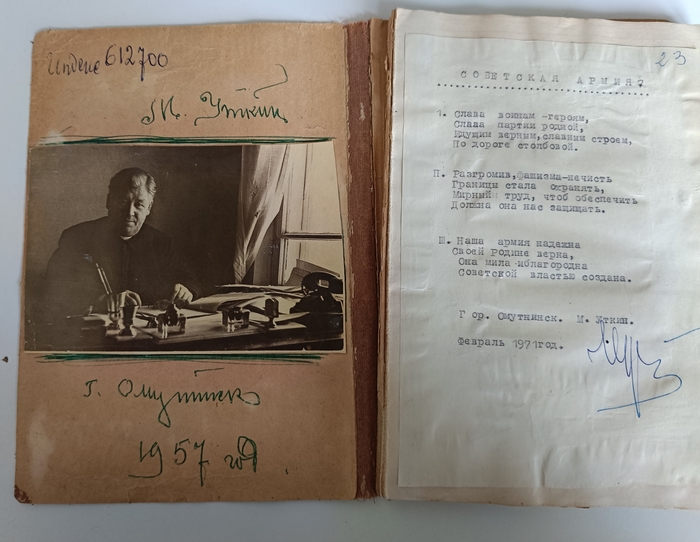 Индекс 612700
М. Уткин
г. Омутнинск
1957 год.
23
СОВЕТСКАЯ АРМИЯ?
I. Слава воинам -героям,
Слава партии родной,
Идущим верным,славним строем,
По дороге столбовой.
II. Разгромив,фашизма-нечисть
Границы стала охранять,
Мирный труд, чтоб обеспечить
Должна она нас защищать.
Ш. Наша армия надежна
Своей Родине верна,
Она мила иблагородна
Советской властью создана.
Гор. Омутнинск. М. Уткин.
Февраль 1971год.